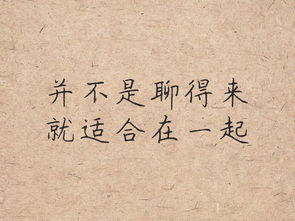 并不是聊得来
就适合在一起